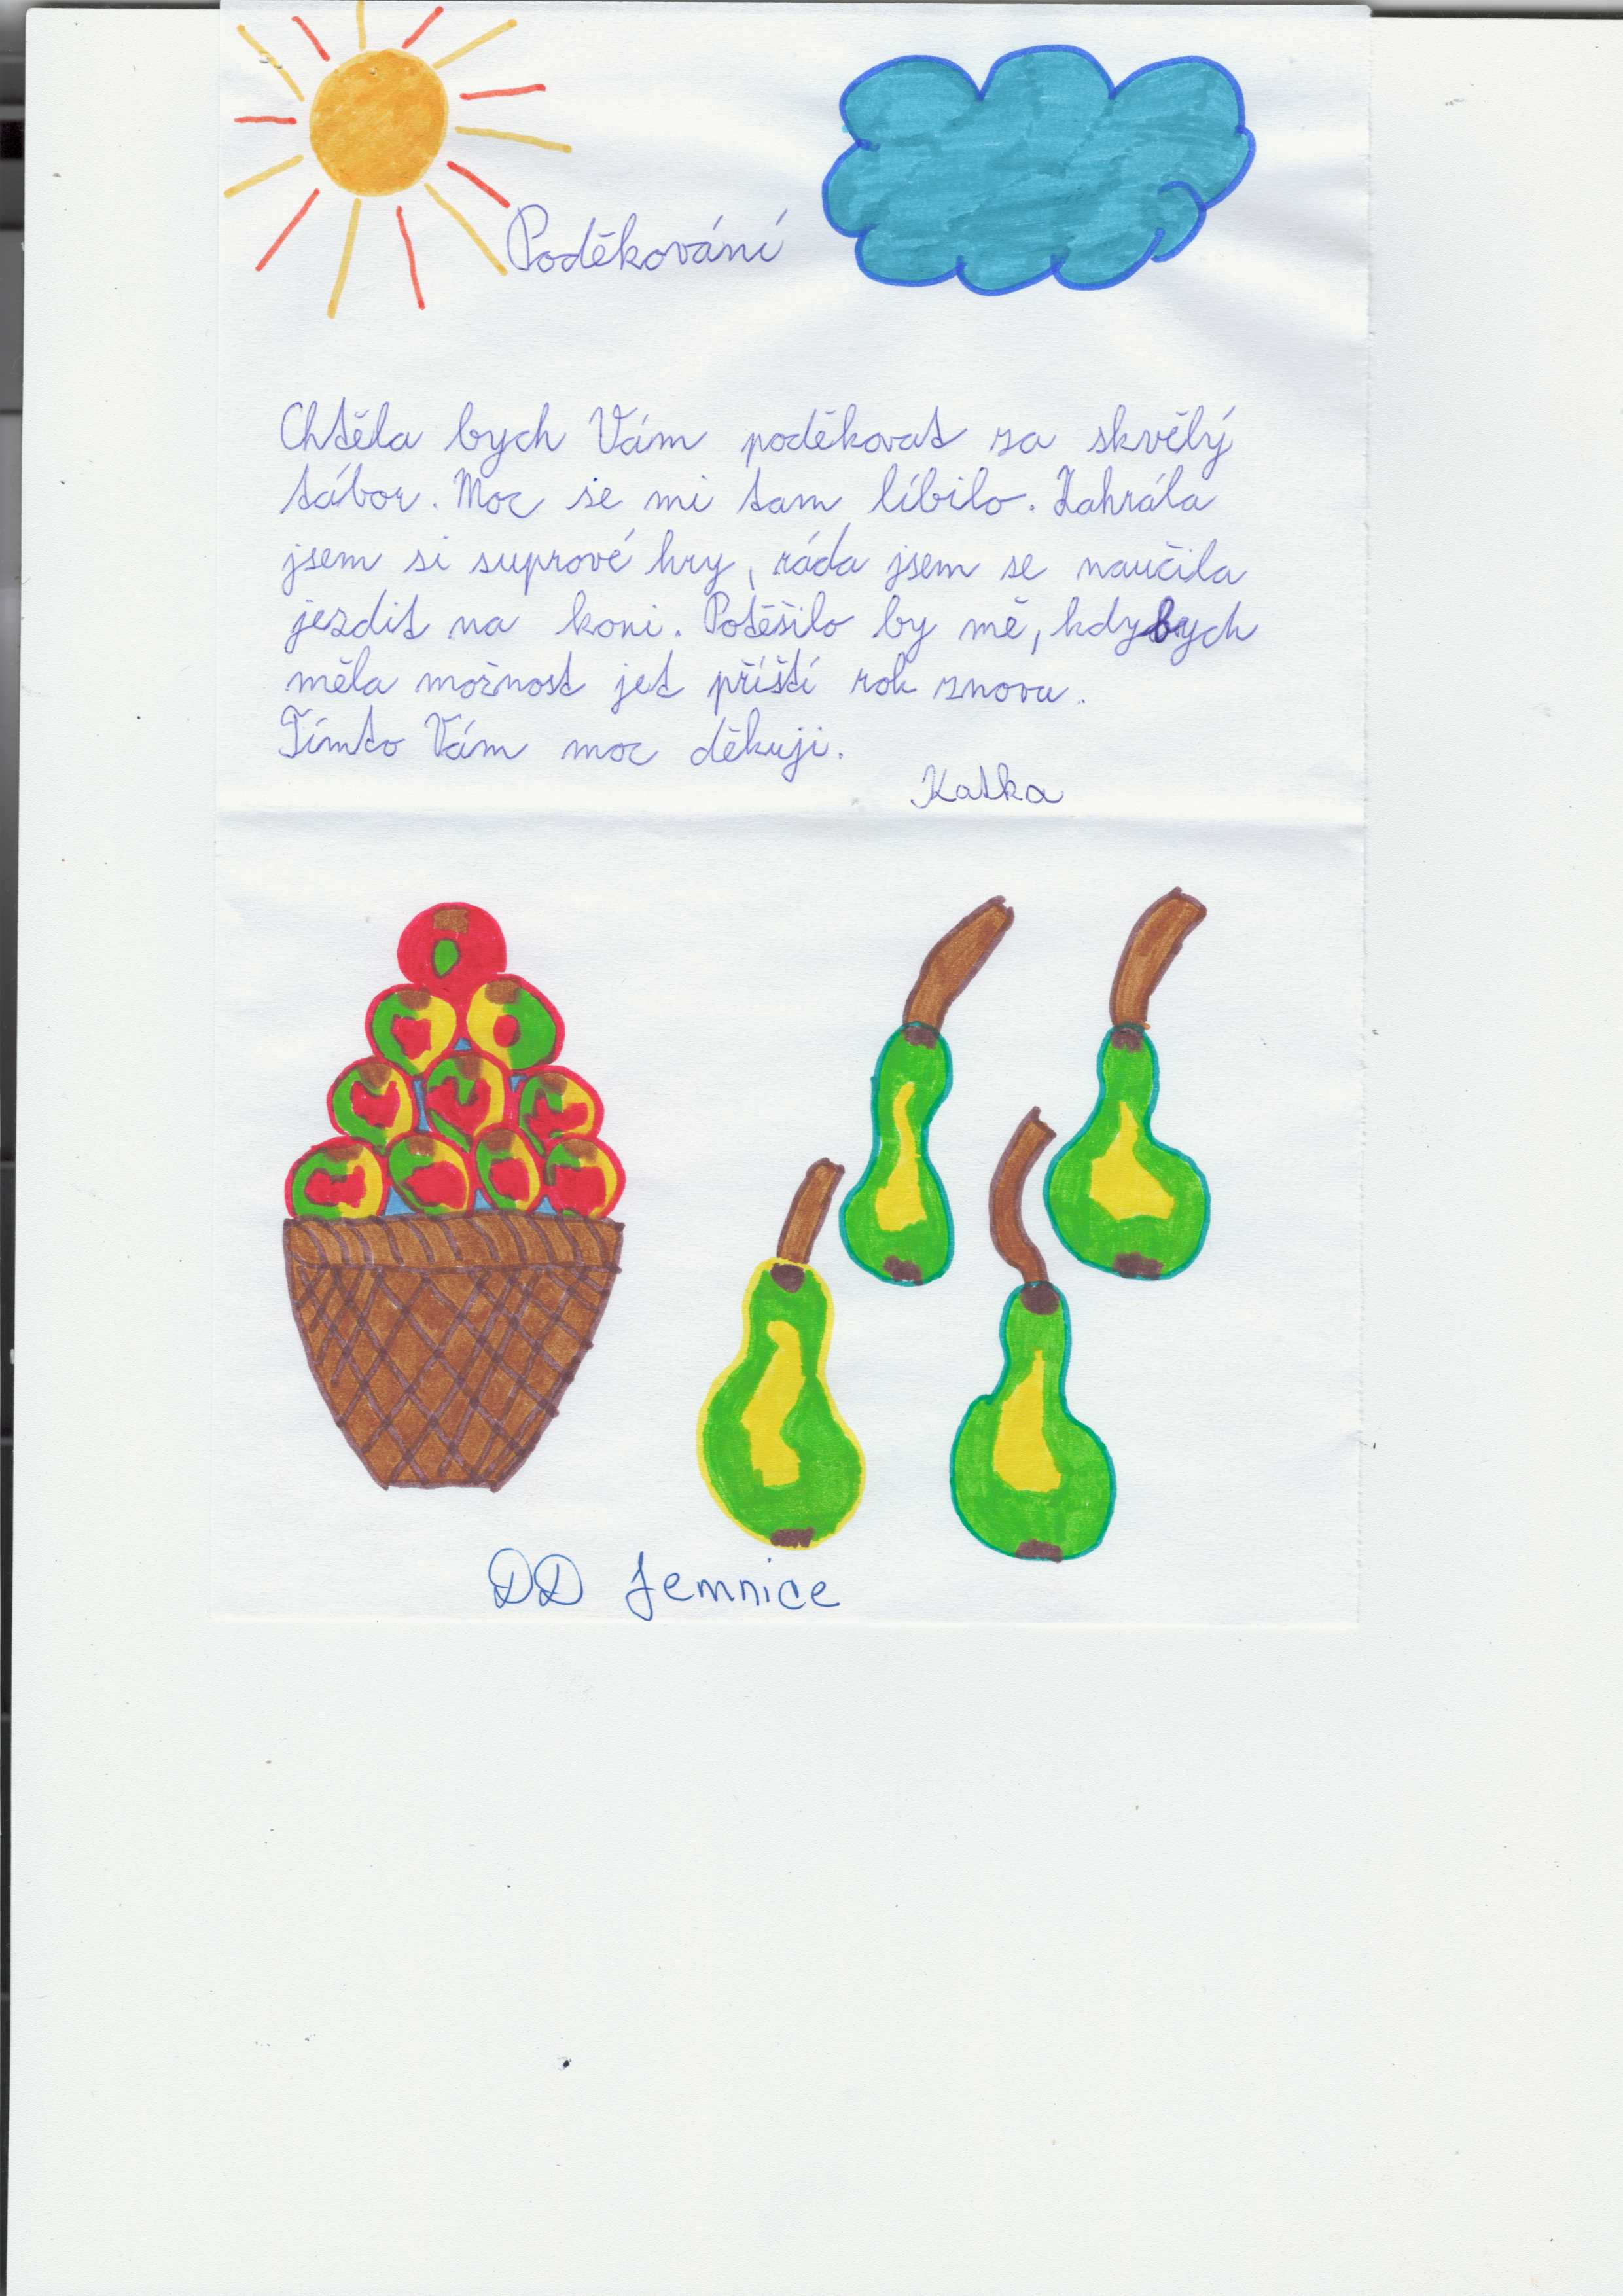 Poděkování
Chtěla bych Vám poděkovat za skvělý
tábor. Moc se mi tam líbilo. Zahrála
jsem si suprové hry, ráda jsem se naučila
jezdit na koni. Potěšilo by mě, kdybych
měla možnost jet příští rok znovu.
Tímto Vám moc děkuji.
Katka
DD Jemnice